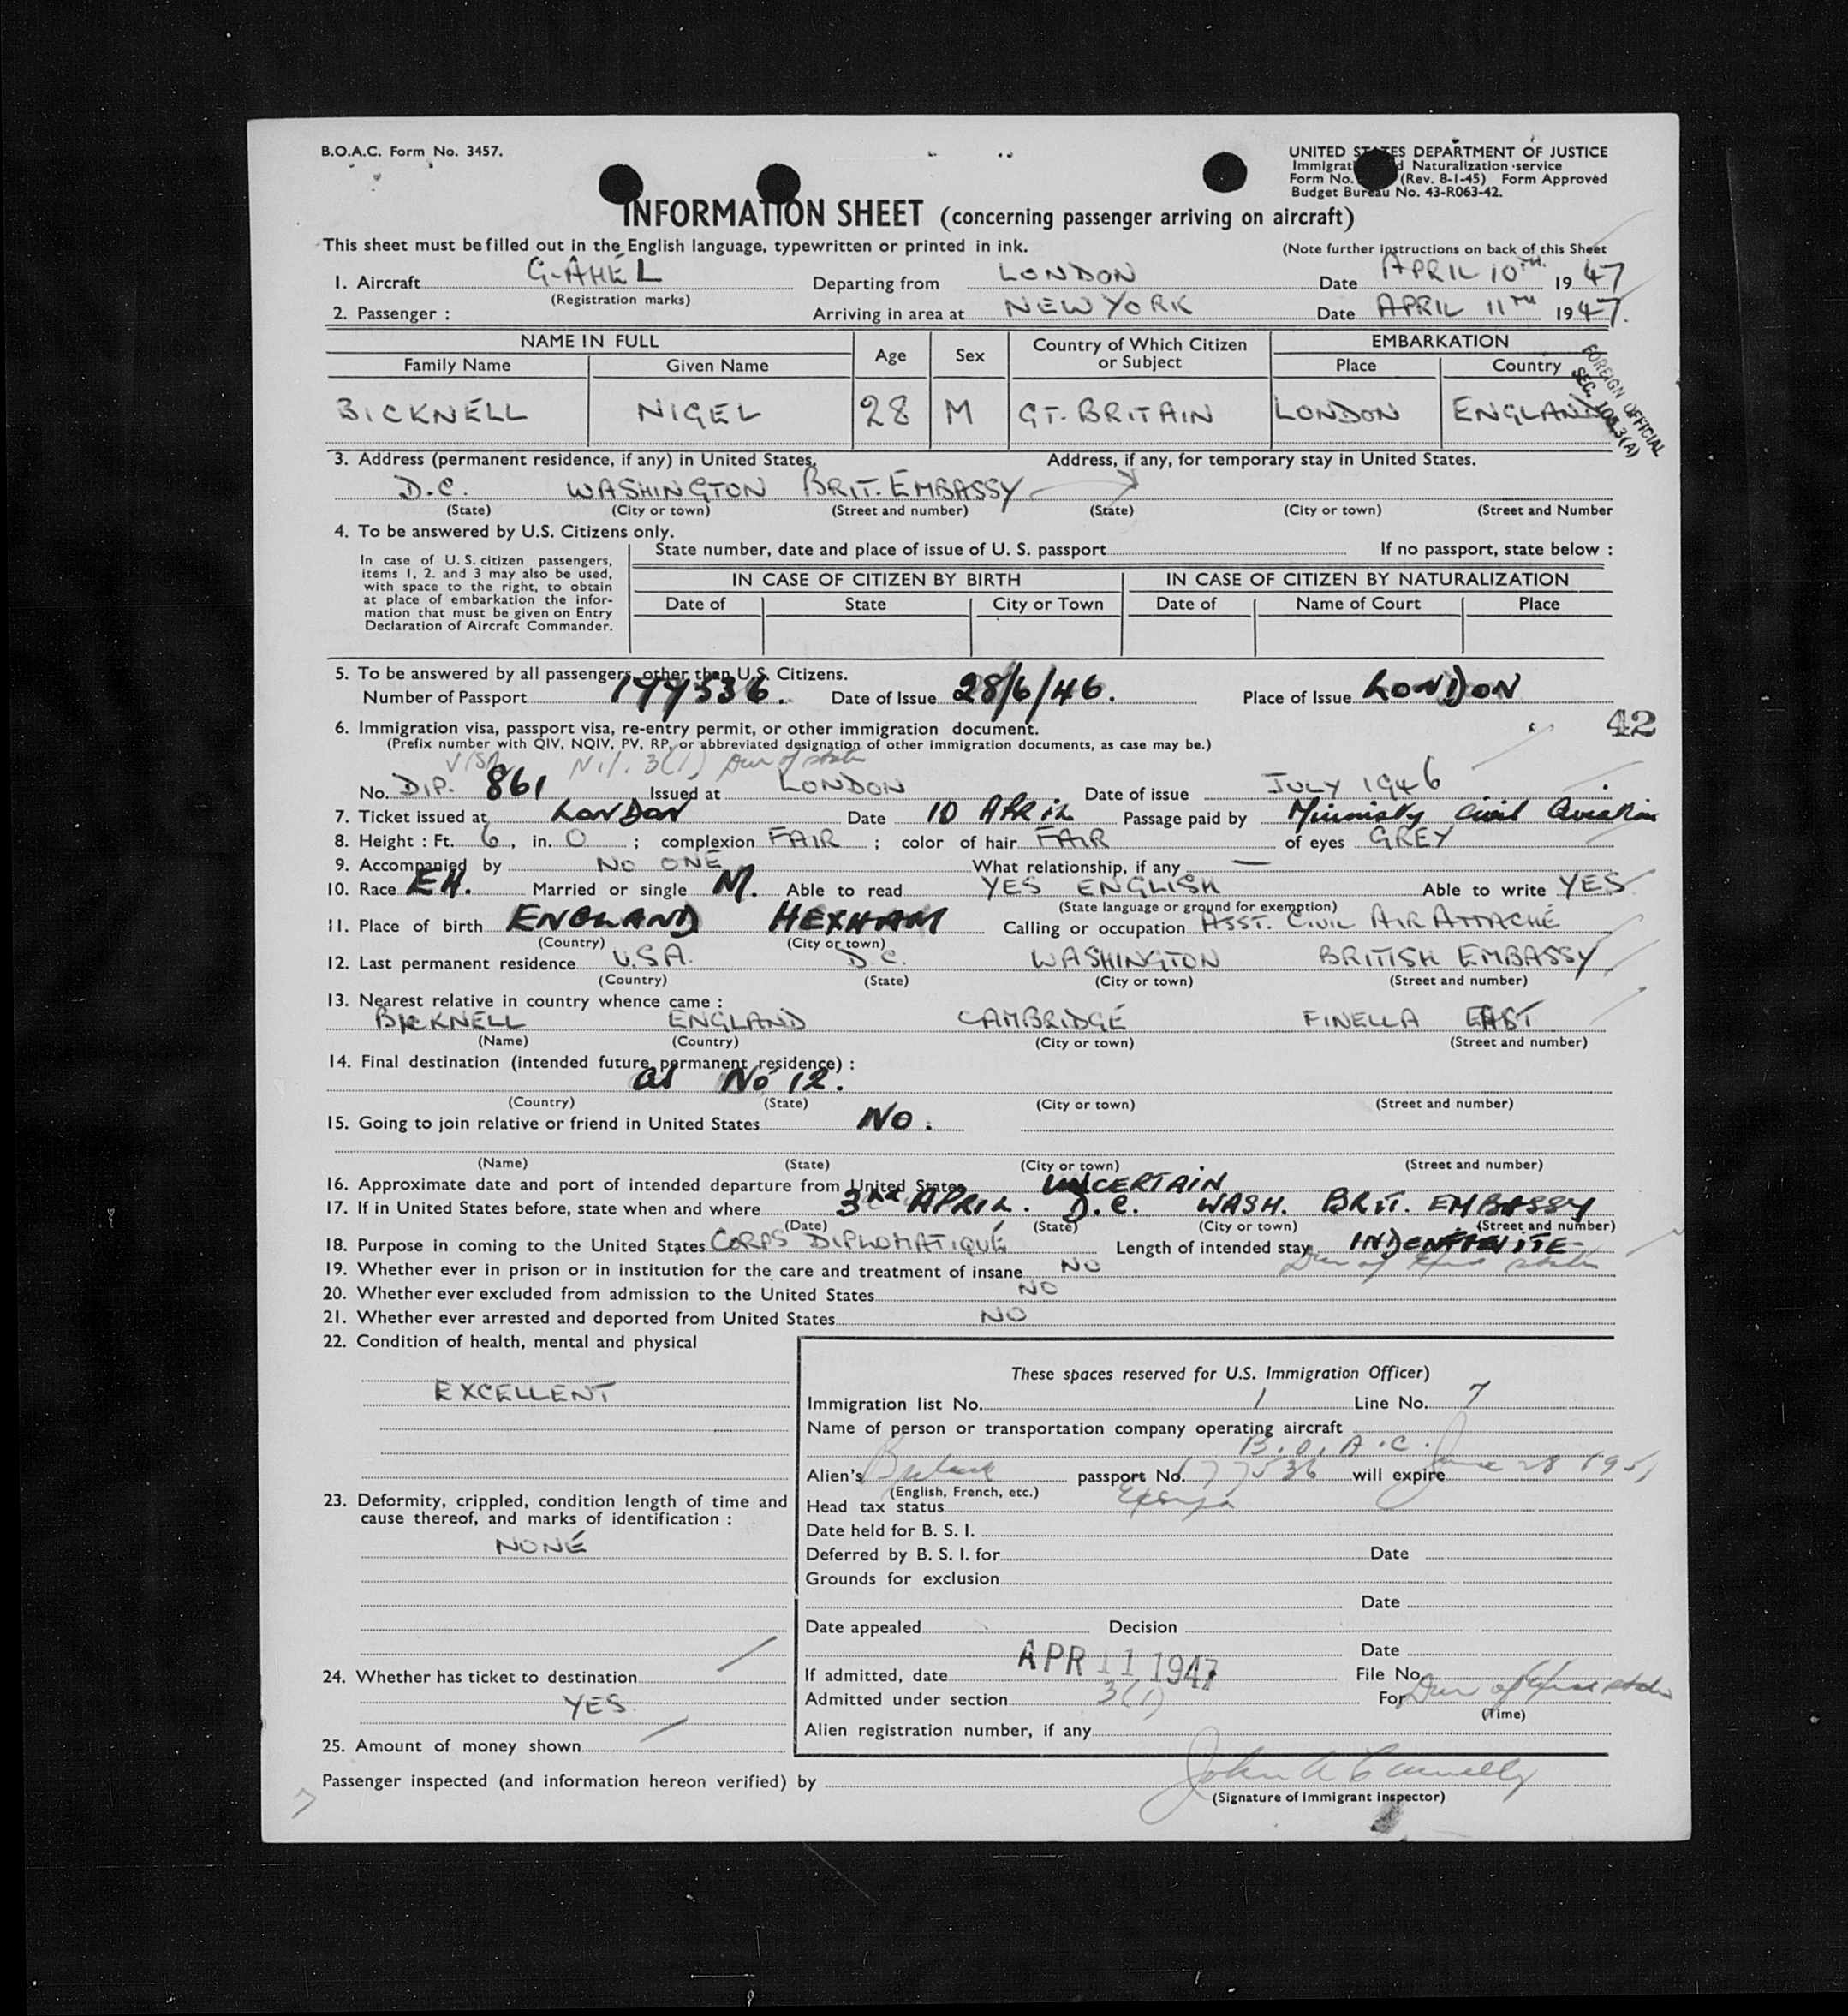 B.O.A.C. Form No. 3457.
UNITED STATES DEPARTMENT OF JUSTICE
Immigrat d Naturalization service
Form No. (Rev. 8-1-45) Form Approved
Budget Bureau No. 43-R063-42.
INFORMATION SHEET (concerning passenger arriving on aircraft)
This sheet must be filled out in the English language, typewritten or printed in ink. (Note further instructions on back of this Sheet
1. Aircraft G-AHEL Departing from LONDON Date APRIL 10TH. 1947
(Registration marks)
2. Passenger : Arriving in area at NEW YORK Date APRIL 11TH 1947.
NAME IN FULL Age Sex Country of Which Citizen or Subject EMBARKATION
Family Name Given Name Place Country
BICKNELL NIGEL 28 M GT. BRITAIN LONDON ENGLAND
FOREIGN OFFICIAL
3. Address (permanent residence, if any) in United States. Address, if any, for temporary stay in United States.
D.C. WASHINGTON BRIT. EMBASSY
(State) (City or town) (Street and number) (State) (City or town) (Street and Number
4. To be answered by U.S. Citizens only.
In case of U.S. citizen passengers, items 1, 2. and 3 may also be used, with space to the right, to obtain at place of embarkation the information that must be given on Entry Declaration of Aircraft Commander.
State number, date and place of issue of U. S. passport If no passport, state below :
IN CASE OF CITIZEN BY BIRTH IN CASE OF CITIZEN BY NATURALIZATION
Date of State City or Town Date of Name of Court Place
5. To be answered by all passengers other than U.S. Citizens.
Number of Passport 177536. Date of Issue 28/6/46. Place of Issue LONDON
42
6. Immigration visa, passport visa, re-entry permit, or other immigration document.
(Prefix number with QIV, NQIV, PV, RP, or abbreviated designation of other immigration documents, as case may be.)
VISA 3(1) Dur of status
No. DIP. 861 Issued at LONDON Date of issue JULY 1946
7. Ticket issued at LONDON Date 10 APRIL Passage paid by Ministry Civil Aviation
8. Height : Ft. 6, in. 0 ; complexion FAIR ; color of hair FAIR of eyes GREY
9. Accompanied by NO ONE What relationship, if any —
10. Race EH. Married or single M. Able to read YES ENGLISH Able to write YES
(State language or ground for exemption)
11. Place of birth ENGLAND HEXHAM Calling or occupation ASST. CIVIL AIR ATTACHÉ
(Country) (City or town)
12. Last permanent residence U.S.A. D.C. WASHINGTON BRITISH EMBASSY
(Country) (State) (City or town) (Street and number)
13. Nearest relative in country whence came :
BICKNELL ENGLAND CAMBRIDGE FINELLA EAST
(Name) (Country) (City or town) (Street and number)
14. Final destination (intended future permanent residence) :
as No 12.
(Country) (State) (City or town) (Street and number)
15. Going to join relative or friend in United States NO.
(Name) (State) (City or town) (Street and number)
16. Approximate date and port of intended departure from United States UNCERTAIN
17. If in United States before, state when and where 3rd APRIL. D.C. WASH. BRIT. EMBASSY
(Date) (State) (City or town) (Street and number)
18. Purpose in coming to the United States CORPS DIPLOMATIQUE Length of intended stay INDENFINITE
19. Whether ever in prison or in institution for the care and treatment of insane NO Dur of status
20. Whether ever excluded from admission to the United States NO
21. Whether ever arrested and deported from United States NO
22. Condition of health, mental and physical
EXCELLENT
23. Deformity, crippled, condition length of time and cause thereof, and marks of identification :
NONE
24. Whether has ticket to destination
YES
25. Amount of money shown
These spaces reserved for U.S. Immigration Officer)
Immigration list No. 1 Line No. 7
Name of person or transportation company operating aircraft
B.O.A.C.
Alien's passport No. 177536 will expire June 28 1951
(English, French, etc.)
Head tax status
Date held for B. S. I.
Deferred by B. S. I. for Date
Grounds for exclusion
Date
Date appealed Decision
Date
If admitted, date APR 11 1947 File No.
Admitted under section 3(1) For Dur of status
(Time)
Alien registration number, if any
Passenger inspected (and information hereon verified) by John A Connelly
(Signature of Immigrant Inspector)
7